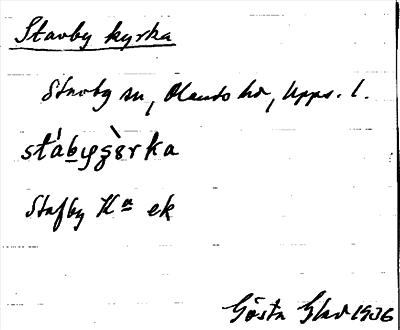 Stavby kyrka
Stavby sn, Olands hd, Upps. l.
Stafby K:a ek
Gösta Glad 1936